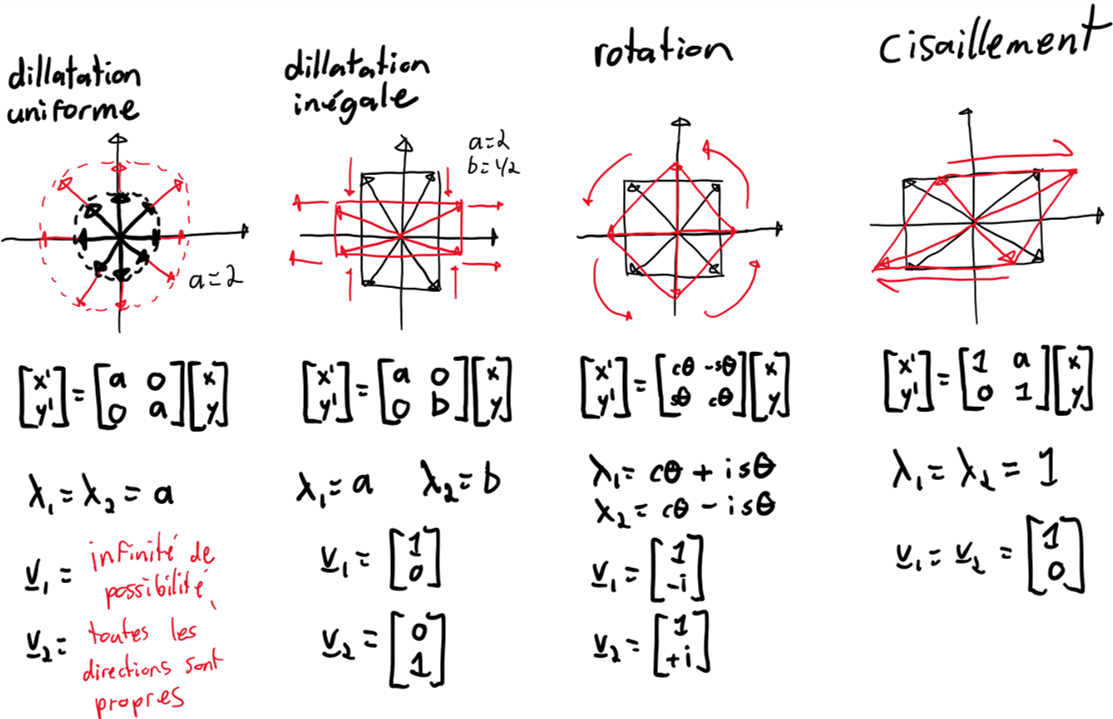 dillatation
uniforme
a=2
[x' y'] = [a 0 0 a][x y]
λ₁=λ₂=a
v₁= infinité de
possibilité,
v₂= toutes les
directions sont
propres
dillatation
inégale
a=2
b=1/2
[x' y'] = [a 0 0 b][x y]
λ₁=a λ₂=b
v₁=[1 0]
v₂=[0 1]
rotation
[x' y'] = [cθ -sθ sθ cθ][x y]
λ₁=cθ+isθ
λ₂=cθ-isθ
v₁=[1 -i]
v₂=[1 +i]
cisaillement
[x' y'] = [1 a 0 1][x y]
λ₁=λ₂=1
v₁=v₂=[1 0]